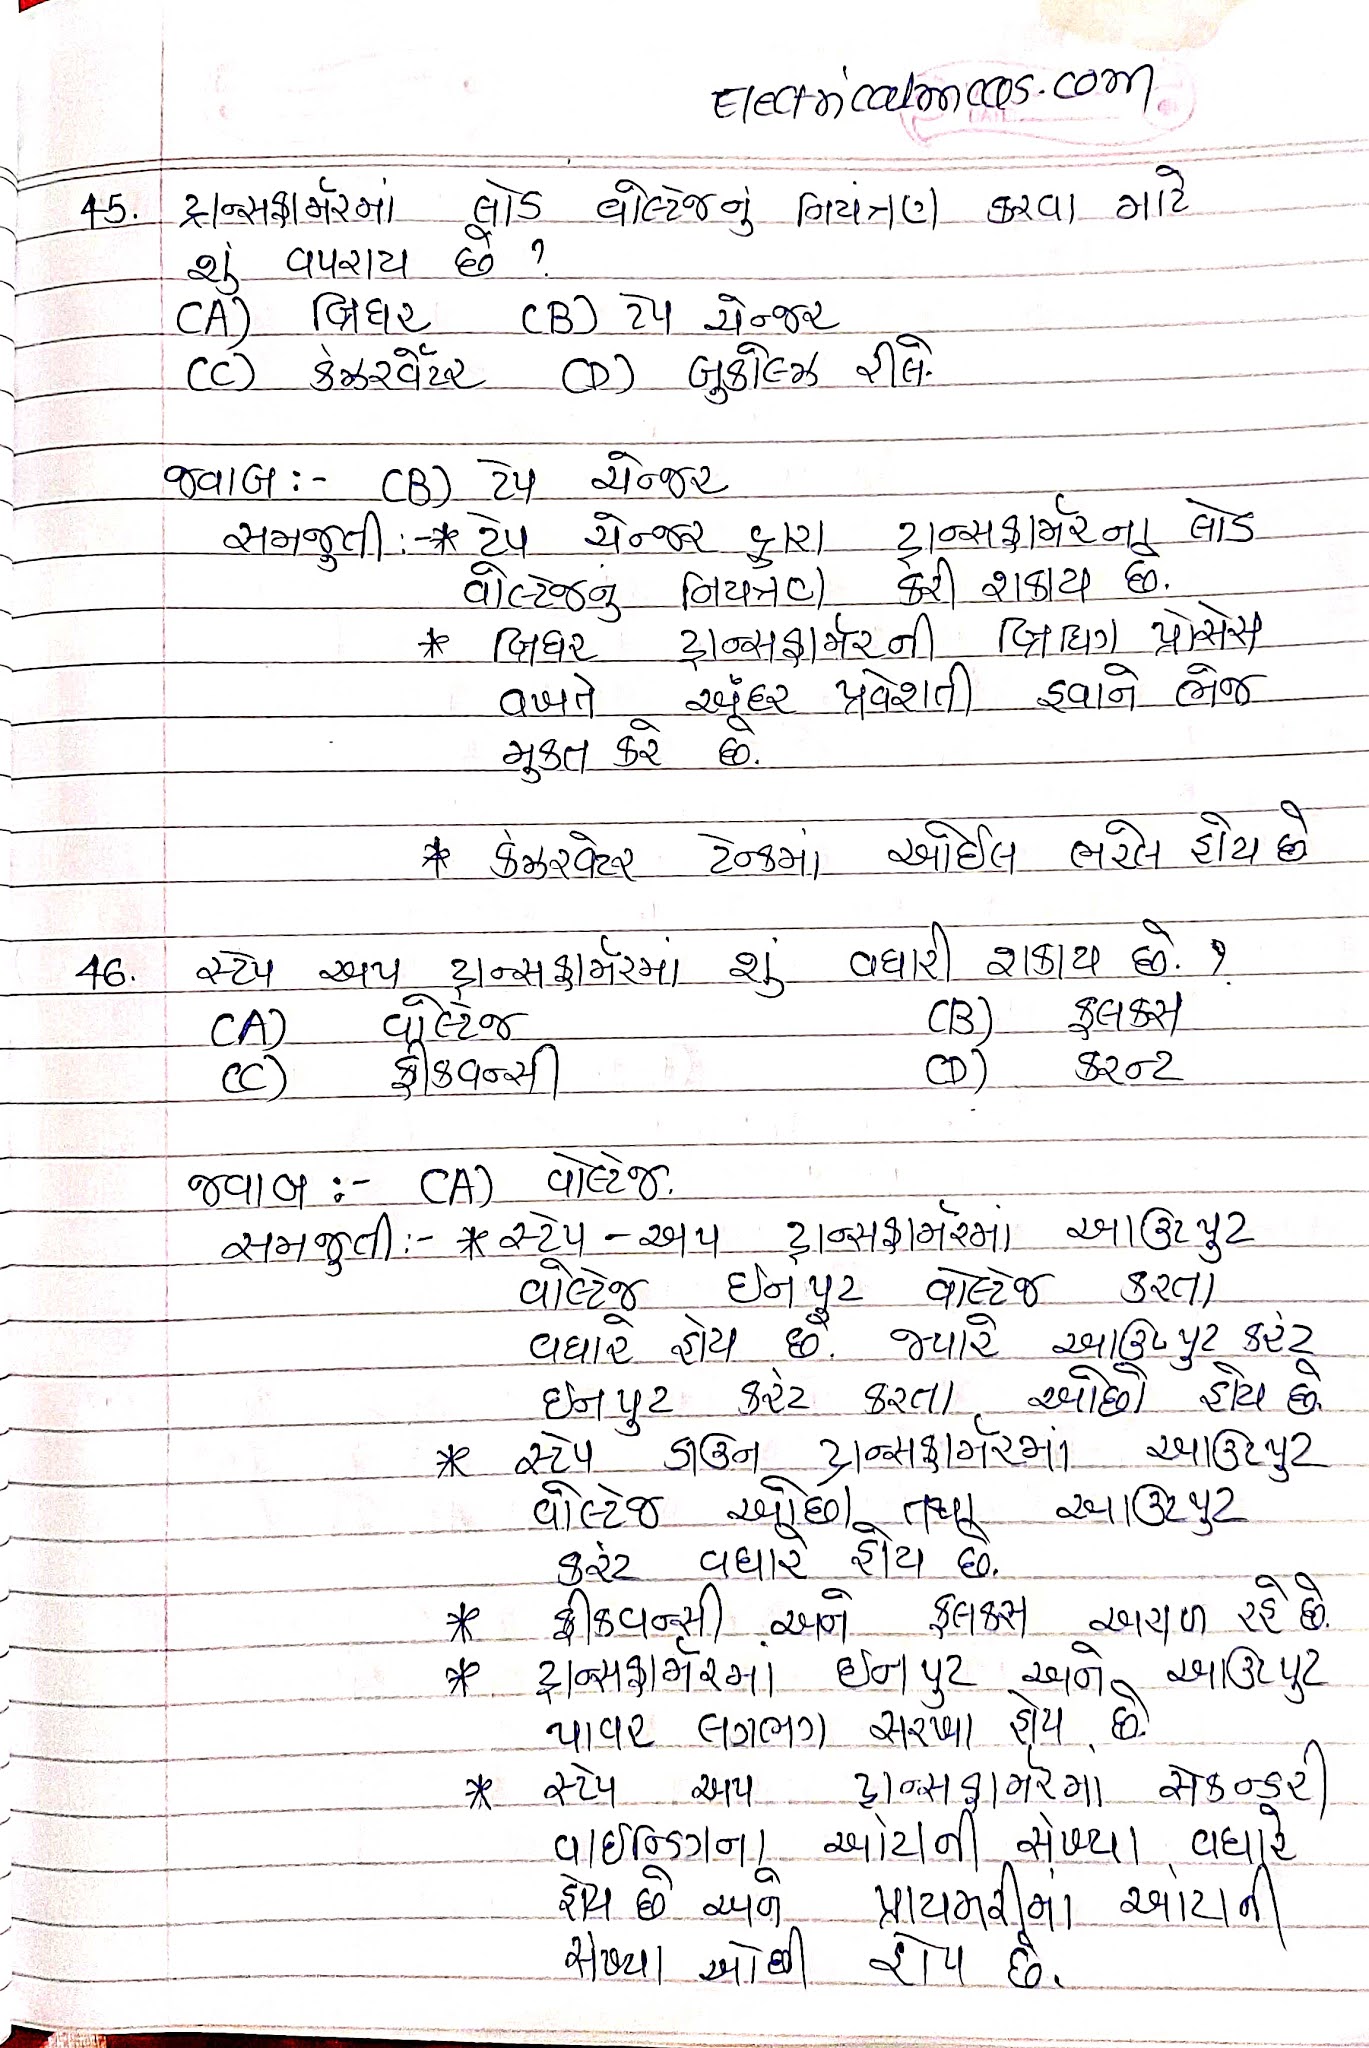 Electricalmcqs.com
45. ટ્રાન્સફાર્મરમાં લોડ વોલ્ટેજનું નિયંત્રણ કરવા માટે
શું વપરાય છે ?
(A) બ્રિધર (B) ટેપ ચેન્જર
(C) કંઝરવેટર (D) બુકોલ્ઝ રીલે.
જવાબ :- (B) ટેપ ચેન્જર
સમજુતી :- * ટેપ ચેન્જર દ્વારા ટ્રાન્સફાર્મરના લોડ
વોલ્ટેજનું નિયત્રણ કરી શકાય છે.
* બ્રિધર ટ્રાન્સફાર્મરની બ્રિધિગ પ્રોસેસ
વખતે અંદર પ્રવેશતી હવાને ભેજ
મુકત કરે છે.
* કંઝરવેટર ટેન્કમાં ઓઈલ ભરેલ હોય છે
46. સ્ટેપ અપ ટ્રાન્સફાર્મરમાં શું વધારી શકાય છે. ?
(A) વોલ્ટેજ (B) ફલકસ
(C) ફ્રીકવન્સી (D) કરન્ટ
જવાબ :- (A) વોલ્ટેજ.
સમજુતી :- * સ્ટેપ - અપ ટ્રાન્સફાર્મરમાં આઉટપુટ
વોલ્ટેજ ઈનપુટ વોલ્ટેજ કરતા
વધારે હોય છે. જ્યારે આઉટપુટ કરંટ
ઈનપુટ કરંટ કરતા ઓછો હોય છે.
* સ્ટેપ ડાઉન ટ્રાન્સફાર્મરમાં આઉટપુટ
વોલ્ટેજ ઓછો તથા આઉટપુટ
કરંટ વધારે હોય છે.
* ફ્રીકવન્સી અને ફલકસ અચળ રહે છે.
* ટ્રાન્સફાર્મરમાં ઈનપુટ અને આઉટપુટ
પાવર લગભગ સરખા હોય છે.
* સ્ટેપ અપ ટ્રાન્સફાર્મરમાં સેકન્ડરી
વાઈન્ડિગના આંટાની સંખ્યા વધારે
હોય છે અને પ્રાયમરીમાં આંટાની
સંખ્યા ઓછી હોય છે.